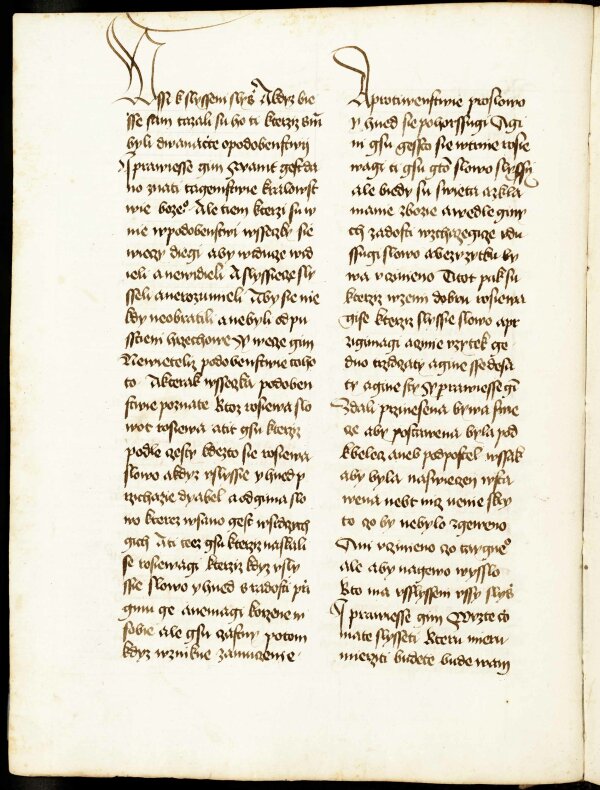 Vssi k slysseni slys Akdyz bie
sse sam tazali su ho ti kterziz s nim
byli dwanaczte o podobenstwij
I prawiesse gim Wamt gest da
no znati tagemstwie kralowst
wie bozeº Ale tiem kterzi su w
nie w podobenstwi wsseczky sie
wieczy diegi aby widuze wid
ieli a newidieli A slyssieeze sly
sseli a nerozumieli Aby sie nie
kdy neobratili a nebyli odpu
sstieni hrzechowe Y wece gim
Newieteliz podobenstwie toho
to Akterak wsseczka podoben
stwie poznate Ktoz rosiewa slo
wot rosiewa a tit gsu kterziz
podle czesty kdezto sie rosiewa
slowo akdyz vslyssie y hned p
rzichazie dyablel a odgima slo
wo kterez wsano gest w srdczych
gich A ti teez gsu kterziz na skali
se rosiewagi kterziz kdyz vsly
ssie slowo y hned s radosti przi
gmu ge a nemagi korzene w
sobie ale gsu czasny potom
kdyz wznikne zamuczenie
A protiwenstwie pro slowo
y hned sie pohorssugi A gi
ni gsu gessto sie w trnie rosie
wagi ti gsu gto slowo slyssy
ale biedy su swieta a zkla
manie zbozie a wedle giny
ch zadosti wzchazegicze vdu
ssugi slowo a bez vzytku by
wa vczineno Titot pak su
kterziz w zemi dobru rosiewa
gise kterziz slyssie slowo a prz
zigimagi a czinie vzytek ge
dno trzidczaty a gine ssedesa
ty a gine sty Y prawiesse gim
Zdali przinesena bywa swie
ce aby postawena byla pod
kbelecz aneb pod postel wssak
aby byla na swieczen wsta
wena nebt nicz neme skry
to czo by nebylo zgeweno
Ani vczineno czo taygneº
ale aby nagewo wysslo
Kto ma vsslyssem vssy slys
I prawiesse gim Wizte co
mate slysseti Kteru mieru
mierziti budete bude wam